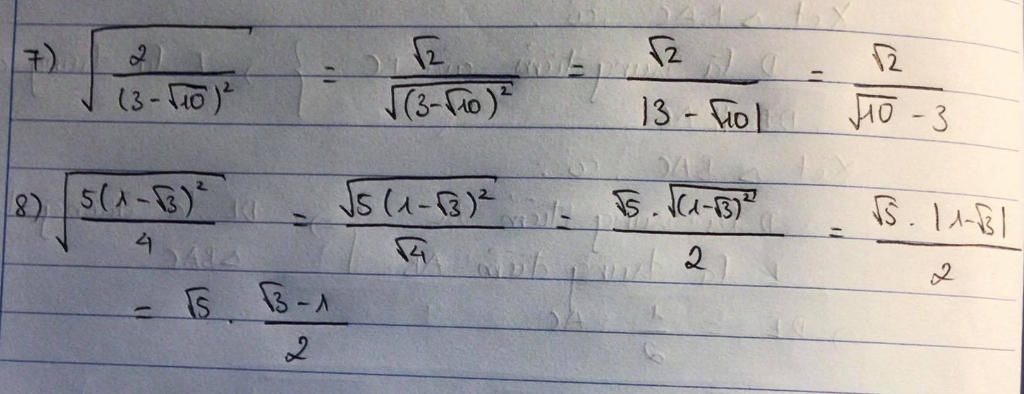 7) √(2/(3-√10)²) = √2/√((3-√10)²) = √2/|3-√10| = √2/(√10-3)
8) √(5(1-√3)²/4) = √(5(1-√3)²)/√4 = √5 . √((1-√3)²)/2 = √5 . |1-√3|/2
= √5 . (√3-1)/2